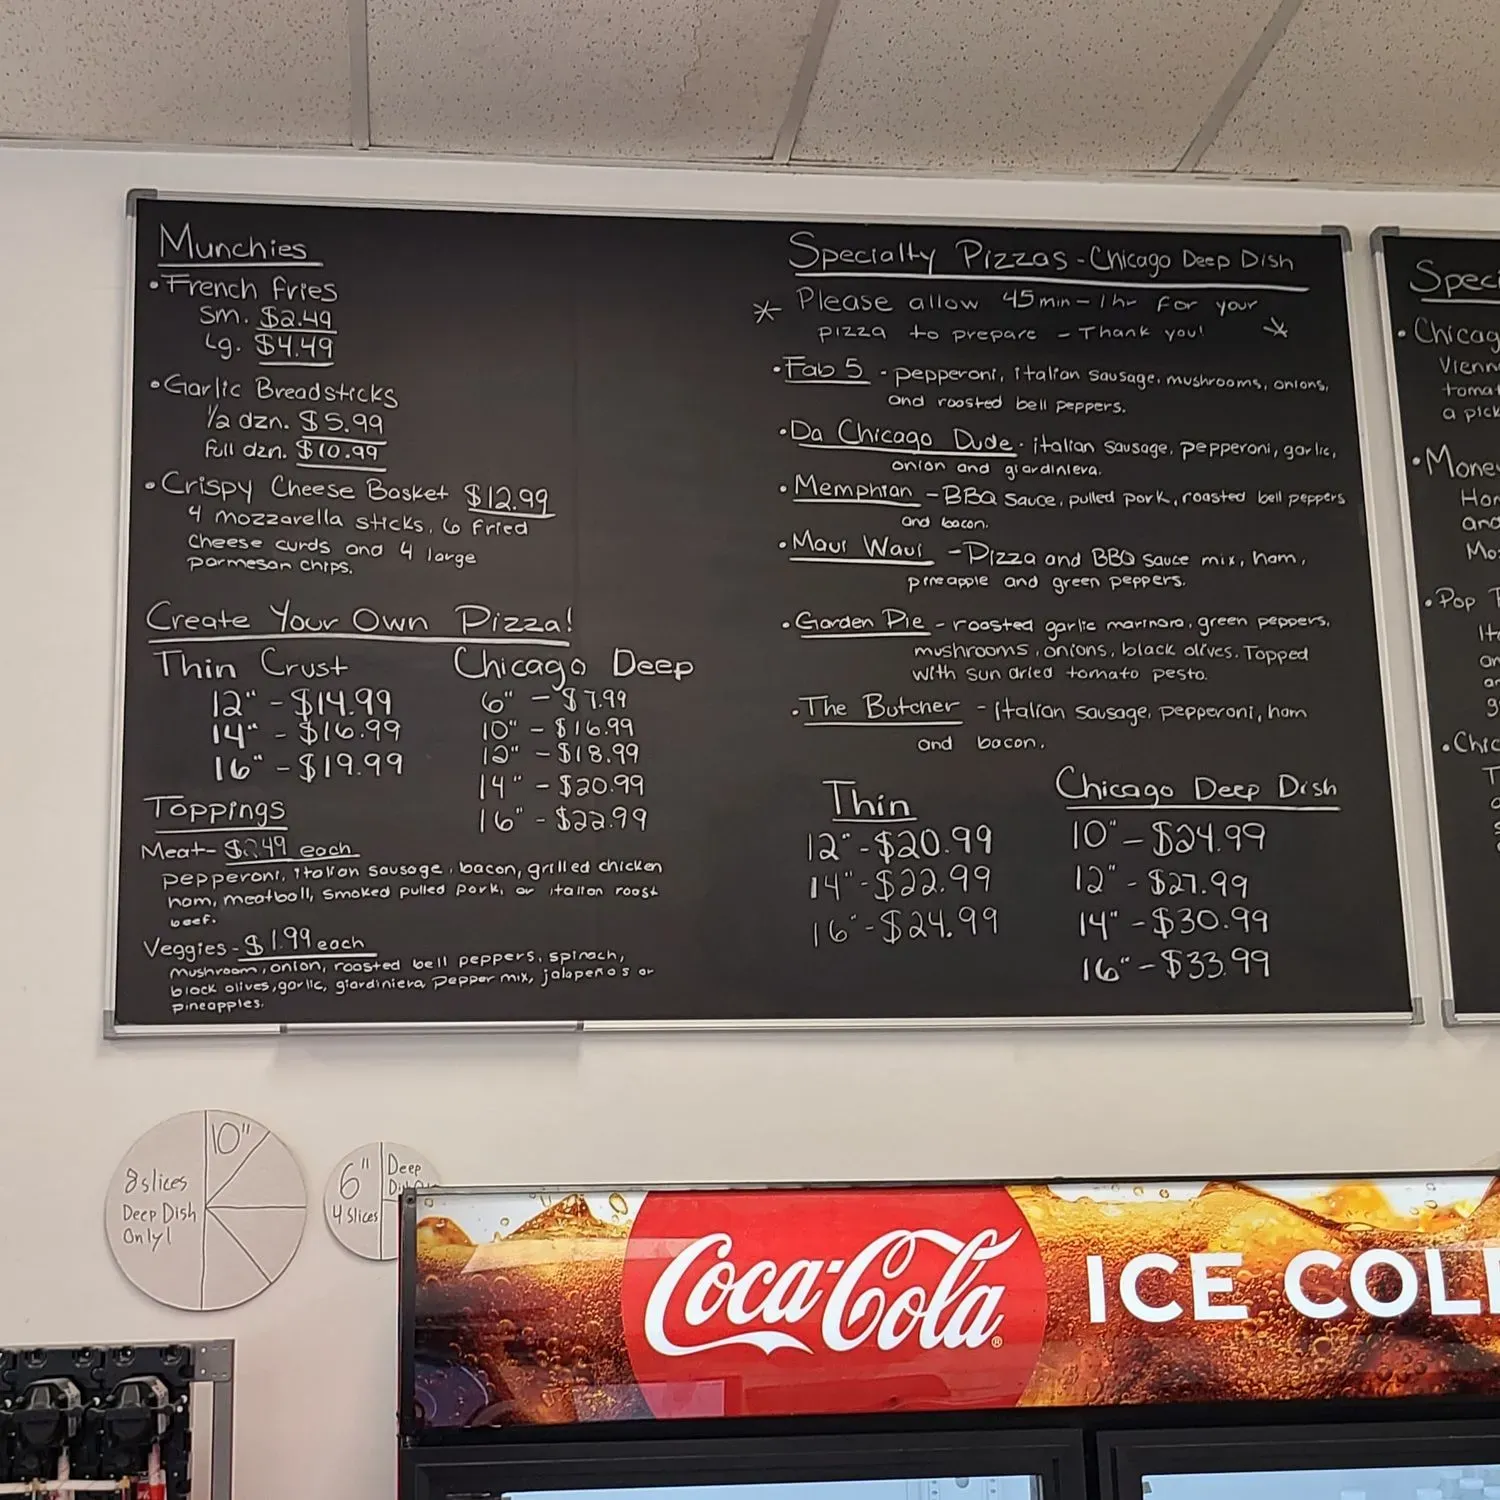 Munchies
• French fries
Sm. $2.49
Lg. $4.49
• Garlic Breadsticks
1/2 dzn. $5.99
Full dzn. $10.99
• Crispy Cheese Basket $12.99
4 mozzarella sticks, 6 fried
cheese curds and 4 large
parmesan chips.
Create Your Own Pizza!
Thin Crust
12" - $14.99
14" - $16.99
16" - $19.99
Chicago Deep
6" - $7.99
10" - $16.99
12" - $18.99
14" - $20.99
16" - $22.99
Toppings
Meat - $2.49 each
pepperoni, italian sausage, bacon, grilled chicken
ham, meatball, smoked pulled pork, or italian roast
beef.
Veggies - $1.99 each
mushroom, onion, roasted bell peppers, spinach,
black olives, garlic, giardiniera pepper mix, jalapeños or
pineapples.
Specialty Pizzas - Chicago Deep Dish
* Please allow 45 min - 1 hr for your
pizza to prepare - Thank you! *
• Fab 5 - pepperoni, italian sausage, mushrooms, onions,
and roasted bell peppers.
• Da Chicago Dude - italian sausage, pepperoni, garlic,
onion and giardiniera.
• Memphian - BBQ sauce, pulled pork, roasted bell peppers
and bacon.
• Maui Waui - Pizza and BBQ sauce mix, ham,
pineapple and green peppers.
• Garden Pie - roasted garlic marinara, green peppers,
mushrooms, onions, black olives. Topped
with sun dried tomato pesto.
• The Butcher - italian sausage, pepperoni, ham
and bacon.
Thin
12" - $20.99
14" - $22.99
16" - $24.99
Chicago Deep Dish
10" - $24.99
12" - $27.99
14" - $30.99
16" - $33.99
Speci
• Chicag
Vienn
tomat
a pick
• Money
Hon
and
Mo
• Pop
Ita
an
a
g
• Chic
T
10"
8 slices
Deep Dish
Only!
6"
4 slices
Deep
Coca-Cola
ICE COL